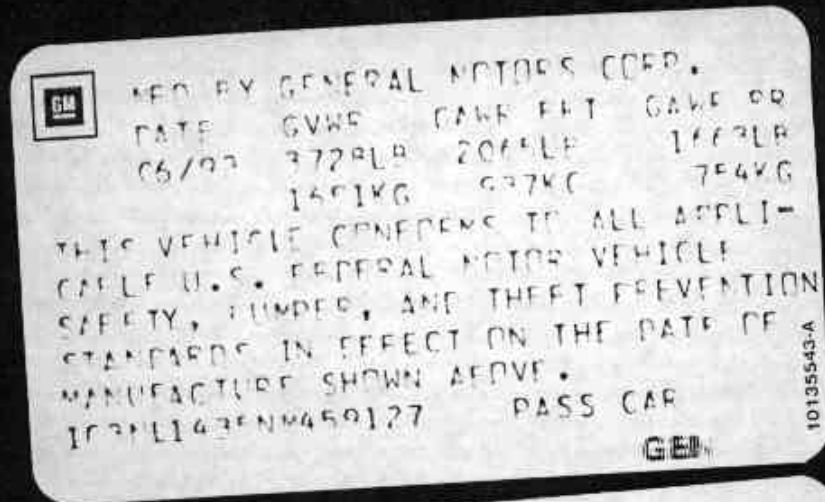 GM
MFD BY GENERAL MOTORS CORP.
DATE GVWR GAWR FRT GAWR RR
3728LB 2065LB 1663LB
1691KG 937KG 754KG
THIS VEHICLE CONFORMS TO ALL APPLI-
CABLE U.S. FEDERAL MOTOR VEHICLE
SAFETY, BUMPER, AND THEFT PREVENTION
STANDARDS IN EFFECT ON THE DATE OF
MANUFACTURE SHOWN ABOVE.
PASS CAR
10135543-A